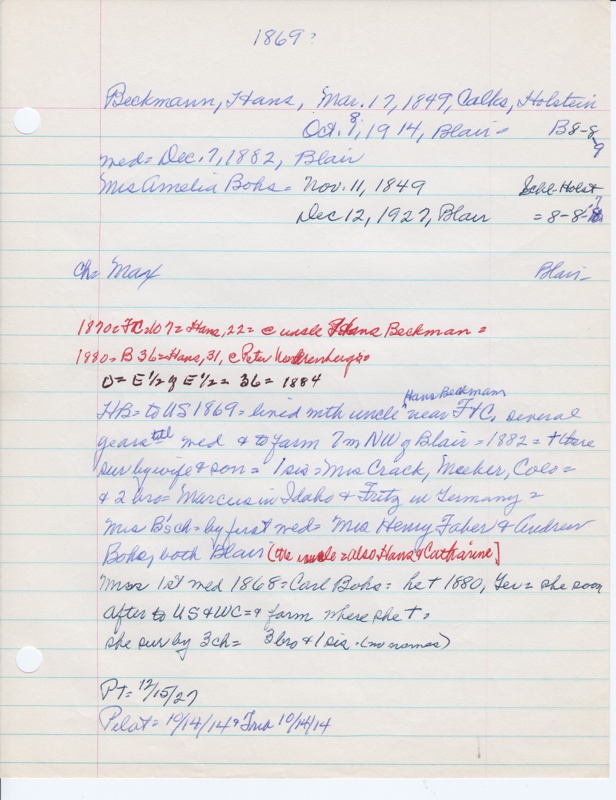 1869?
Beckmann, Hans, Mar. 17, 1849, Calks, Holstein
Oct. 8, 1914, Blair = B 8-8-9
med = Dec. 7, 1882, Blair
Mrs Amelia Bohs = Nov. 11, 1849 Schl-Holst
Dec 12, 1927, Blair = 8-8-
ch = Max Blair =
1870 = FC 107 = Hans, 22 = c uncle Hans Beckman =
1880 = B 36 = Hans, 31, c Peter
O = E 1/2 of E 1/2 = 36 = 1884
Hans Beckmann
HB = to US 1869 = lived with uncle near FtC, several
years till med & to farm 7m NW of Blair = 1882 = + there
sur by wife & son = 1 sis = Mrs Crack, Meeker, Colo =
& 2 bro = Marcus in Idaho & Fritz in Germany =
Mrs B's ch = by first med = Mrs Henry Faber & Andrew
Bohs, both Blair (the uncle = also Hans & Catharine]
Mrs 1st med 1868 = Carl Bohs = he + 1880, Ger = she soon
after to US & WC = & farm where she + =
she sur by 3 ch = 3 bro & 1 sis. (no names)
PT = 12/15/27
Pilot = 10/14/14 & Trib 10/14/14